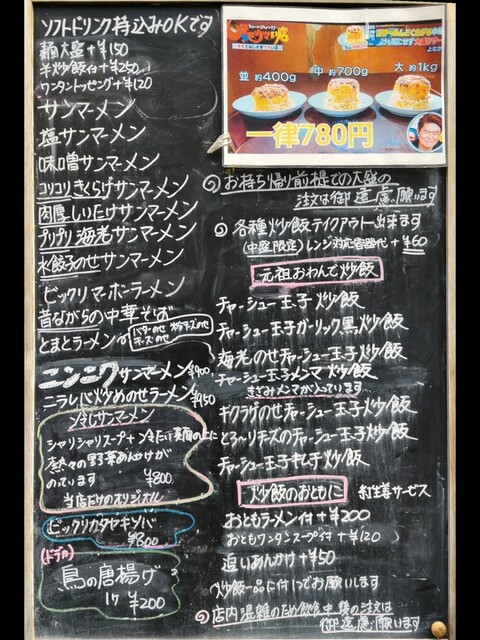 ソフトドリンク持込みOKです
麺大盛+¥150
半炒飯付+¥250
ワンタントッピング+¥120
サンマーメン
塩サンマーメン
味噌サンマーメン
コリコリきくらげサンマーメン
肉厚しいたけサンマーメン
プリプリ海老サンマーメン
水餃子のせサンマーメン
ビックリマーボーラーメン
昔ながらの中華そば
とまとラーメン
バターのせ
チーズのせ
ニンニクサンマーメン¥900
ニラレバ炒めのせラーメン¥950
冷しサンマーメン
シャリシャリスープ+冷たい麺の上に
熱々の野菜あんかけが
のっています ¥800
当店だけのオリジナル
ビックリカタヤキソバ
¥800
(ドデカ)
鳥の唐揚げ
1ケ ¥200
並 約400g
中 約700g
大 約1kg
一律780円
お持ち帰り前提での大盛の
注文は御遠慮願います
各種炒飯テイクアウト出来ます
(中盛限定)レンジ対応容器代+¥60
元祖おわんで炒飯
チャーシュー玉子炒飯
チャーシュー玉子ガーリック黒炒飯
海老のせチャーシュー玉子炒飯
チャーシュー玉子メンマ炒飯
きざみメンマが入っています
キクラゲのせチャーシュー玉子炒飯
とろ〜りチーズのチャーシュー玉子炒飯
チャーシュー玉子キムチ炒飯
炒飯のおともに 紅生姜サービス
おともラーメン付+¥200
おともワンタンスープ付+¥120
追いあんかけ+¥50
炒飯一品に付1つでお願いします
店内混雑のため飲食中の後の注文は
御遠慮願います